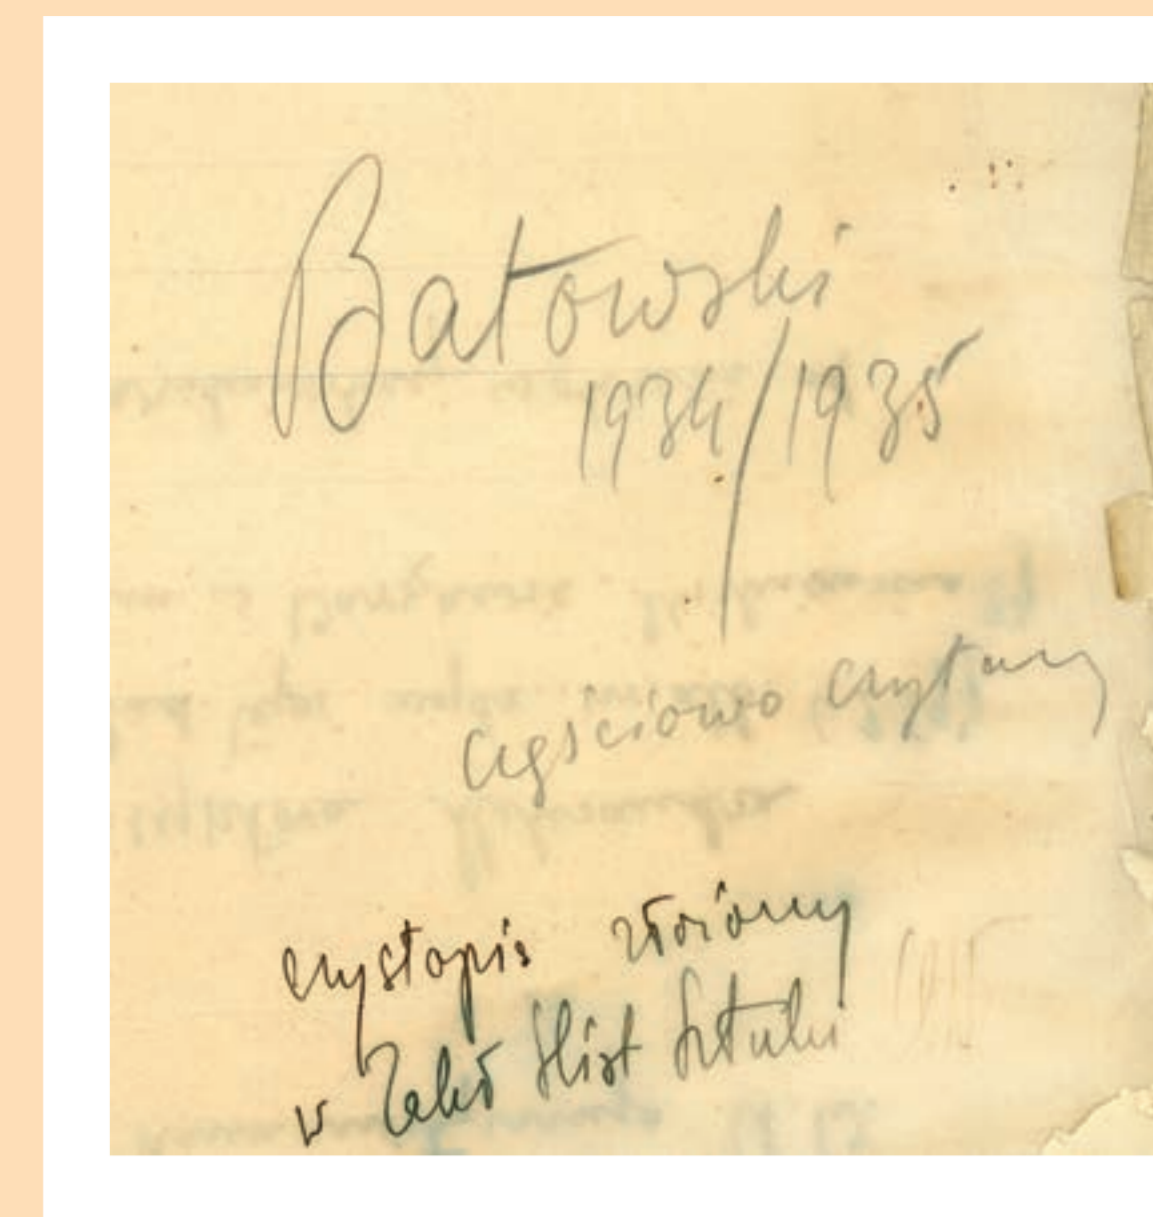 Batowski
1934/1935
częściowo czytany
czystopis złożony
w Zakł Hist Sztuki